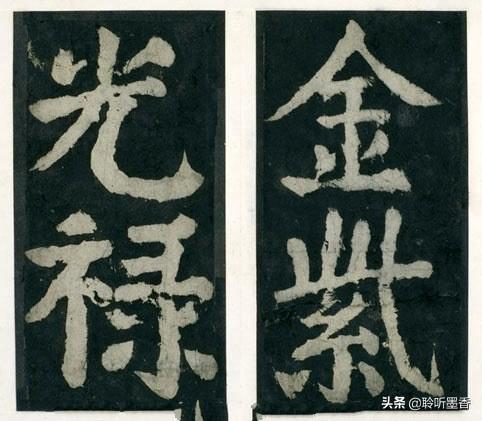 金紫
光禄
头条 @聆听墨香